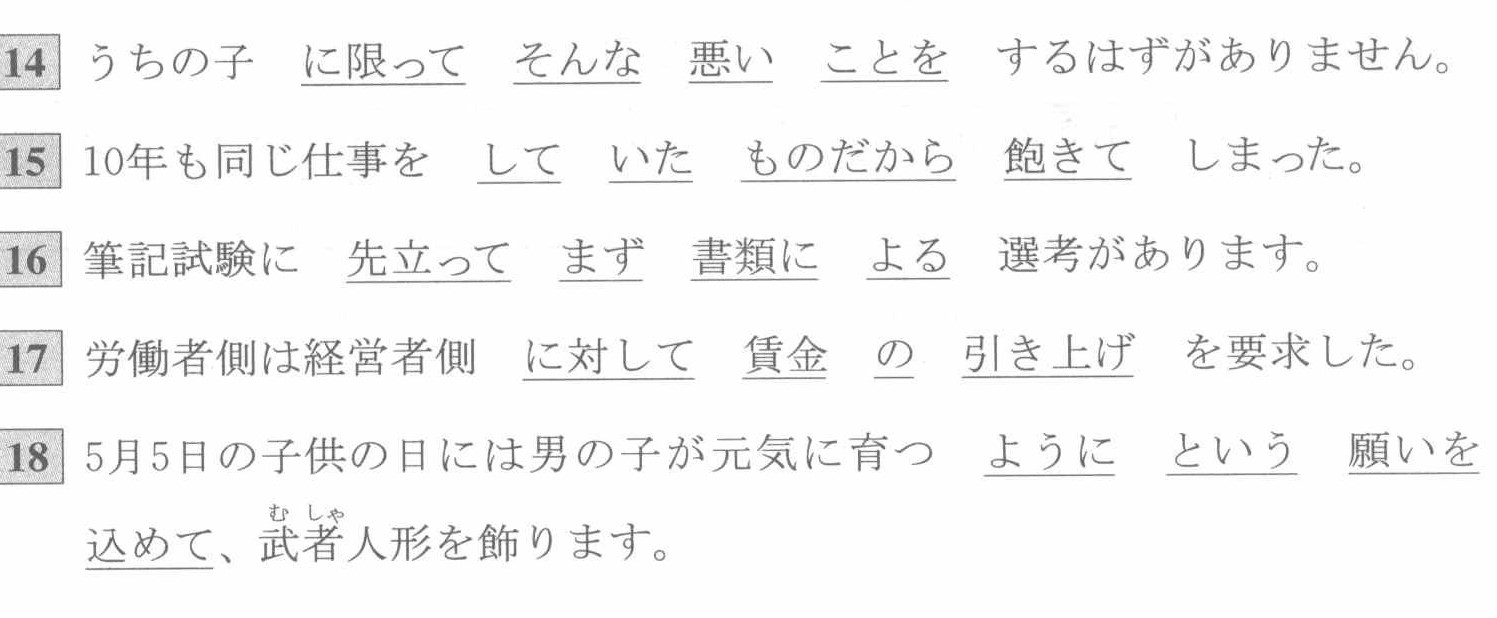 14 うちの子 に限って そんな 悪い ことを するはずがありません。
15 10年も同じ仕事を して いた ものだから 飽きて しまった。
16 筆記試験に 先立って まず 書類に よる 選考があります。
17 労働者側は経営者側 に対して 賃金 の 引き上げ を要求した。
18 5月5日の子供の日には男の子が元気に育つ ように という 願いを
むしゃ
込めて、武者人形を飾ります。